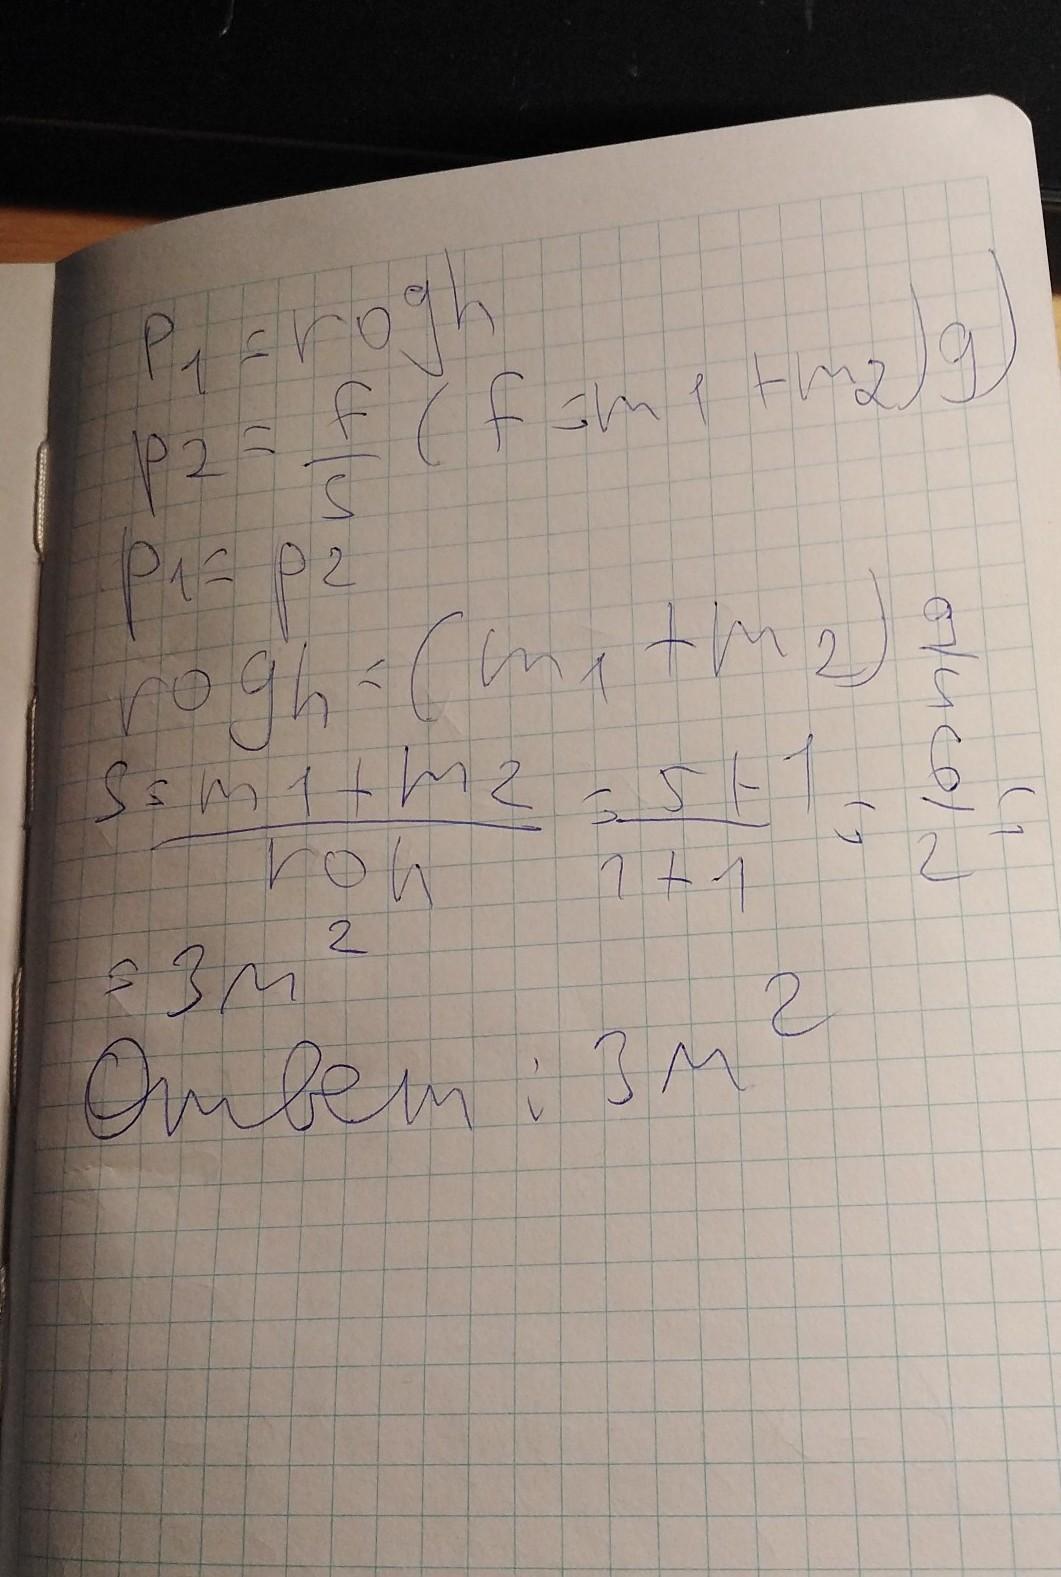 P1 = rogh
p2 = f/s (f=m1+m2)g)
p1= p2
rogh=(m1+m2)g/s
S= m1+m2/roh = 5+1/1+1 = 6/2 =
= 3м²
Ответ: 3м²